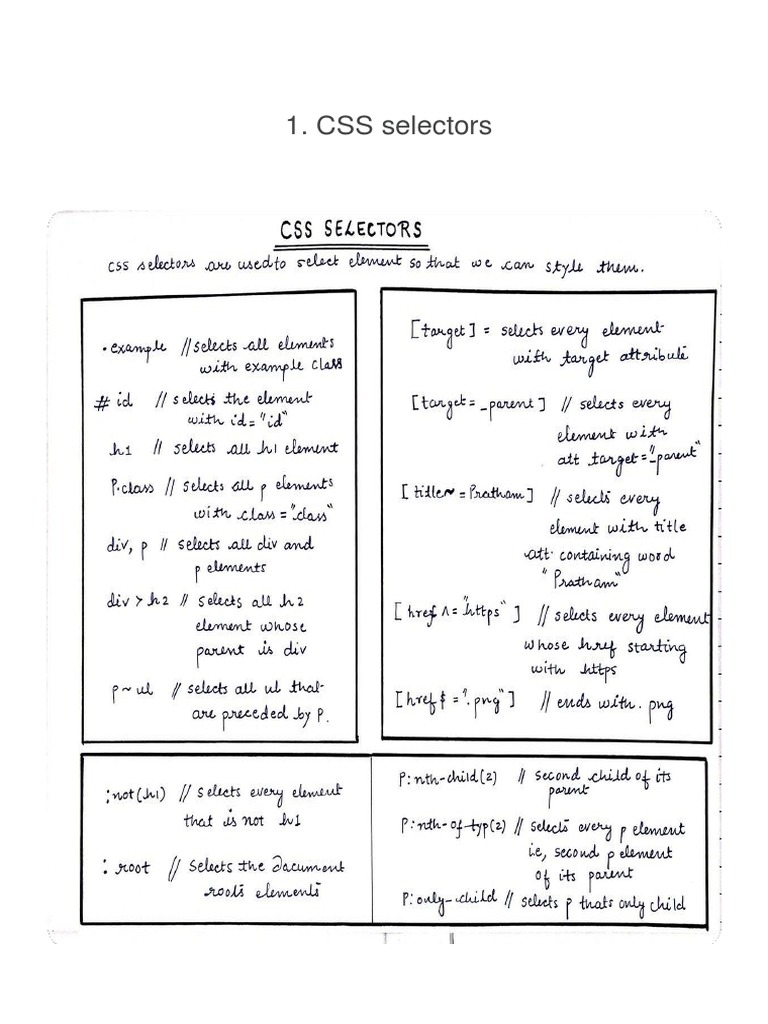 1. CSS selectors
CSS SELECTORS
CSS selectors are used to select element so that we can style them.
.example // selects all elements
with example class
# id // selects the element
with id="id"
h1 // selects all h1 element
P.class // selects all p elements
with class="class"
div, p // selects all div and
p elements
div > h2 // selects all h2
element whose
parent is div
p ~ ul // selects all ul that
are preceded by P.
[target] = selects every element
with target attribute
[target=_parent] // selects every
element with
att target="_parent"
[title~=Pratham] // selects every
element with title
att. containing word
"Pratham"
[href ^= "https"] // selects every element
whose href starting
with https
[href $ = ".png"] // ends with .png
:not(h1) // selects every element
that is not h1
: root // Selects the document
roots elements
P:nth-child(2) // second child of its
parent
P:nth-of-typ(2) // selects every p element
i.e, second p element
of its parent
P:only-child // selects p thats only child